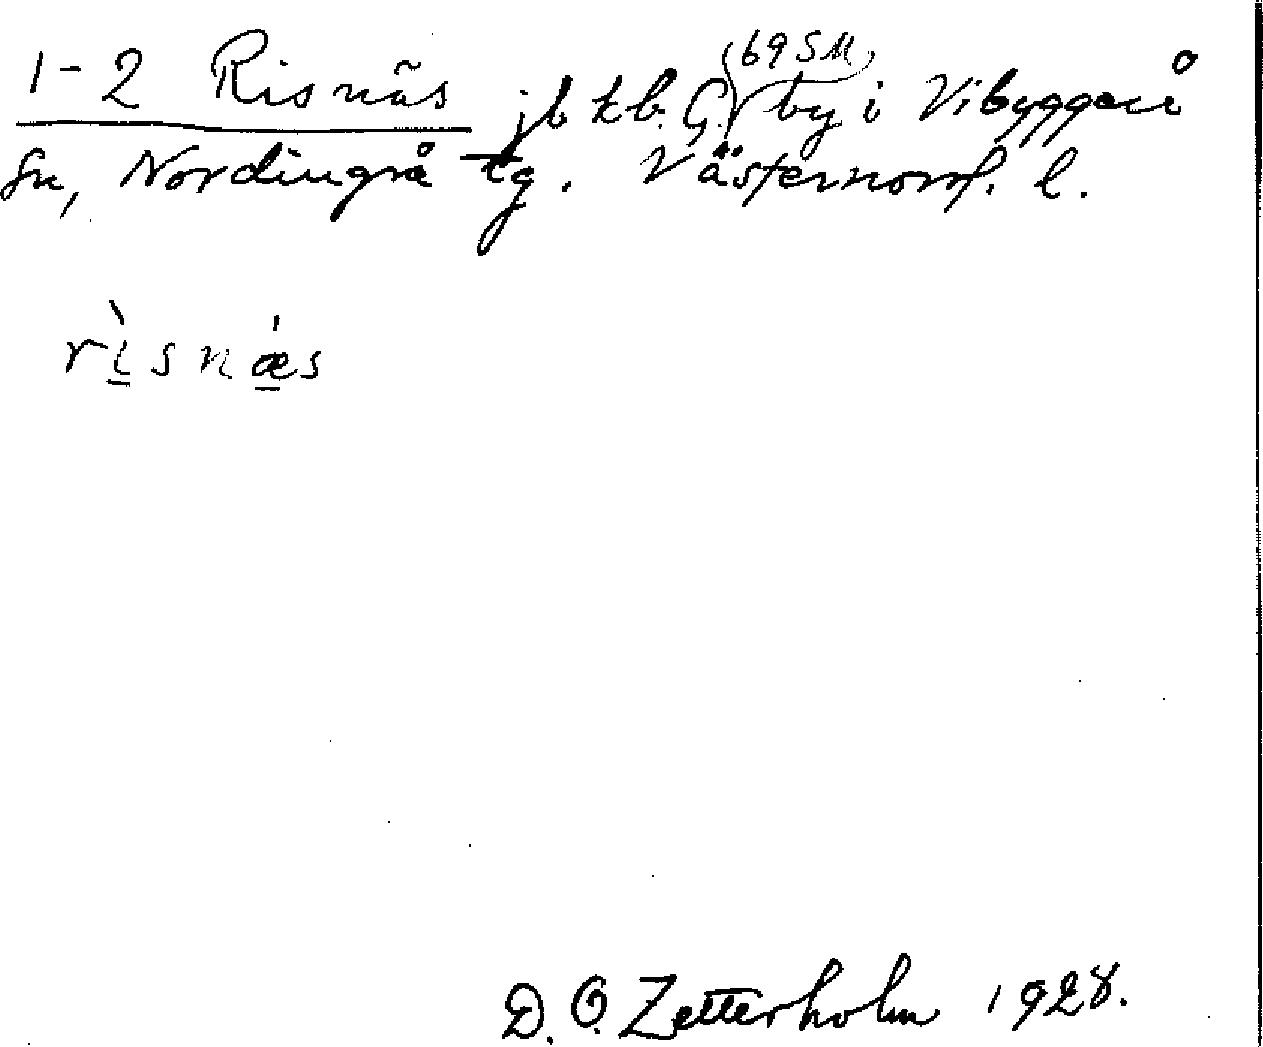 1-2 Risnäs jb tb. G. (69 SM) by i Vibyggerå
sn, Nordingrå tg. Västernorrl. l.
rìsnǽs
D. O. Zetterholm 1928.